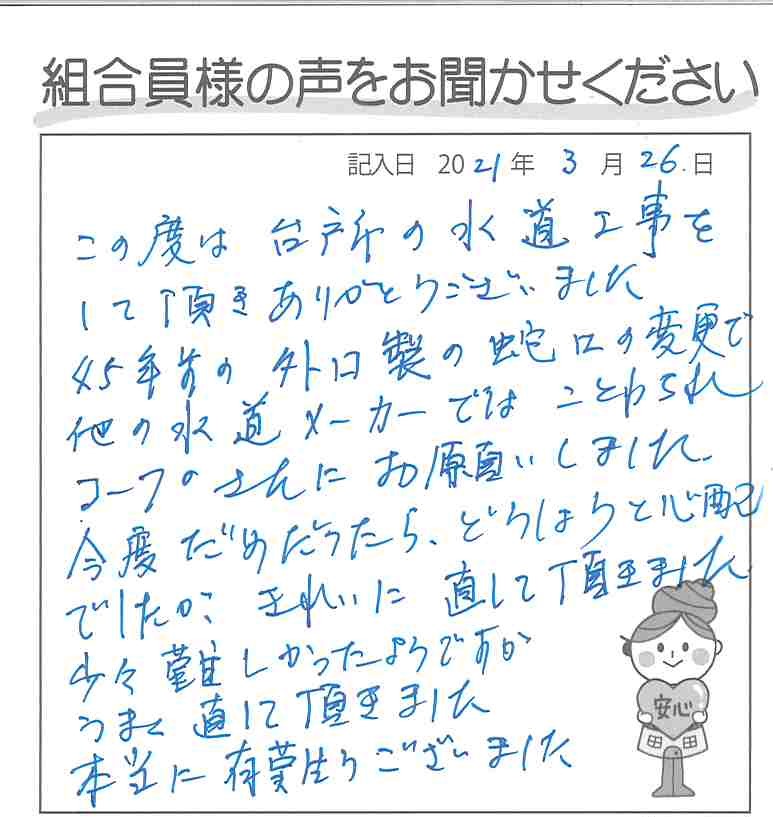 組合員様の声をお聞かせください
記入日 2021年 3月 26日
この度は 台所の水道工事を
して頂きありがとうございました
45年前の外国製の蛇口の変更で
他の水道メーカーではことわられ
コープのさんにお願いしました
今度だめだったら、どうしようと心配
でしたが、きれいに直して頂きました
少々難しかったようですが
うまく直して頂きました
本当に有難うございました
安心